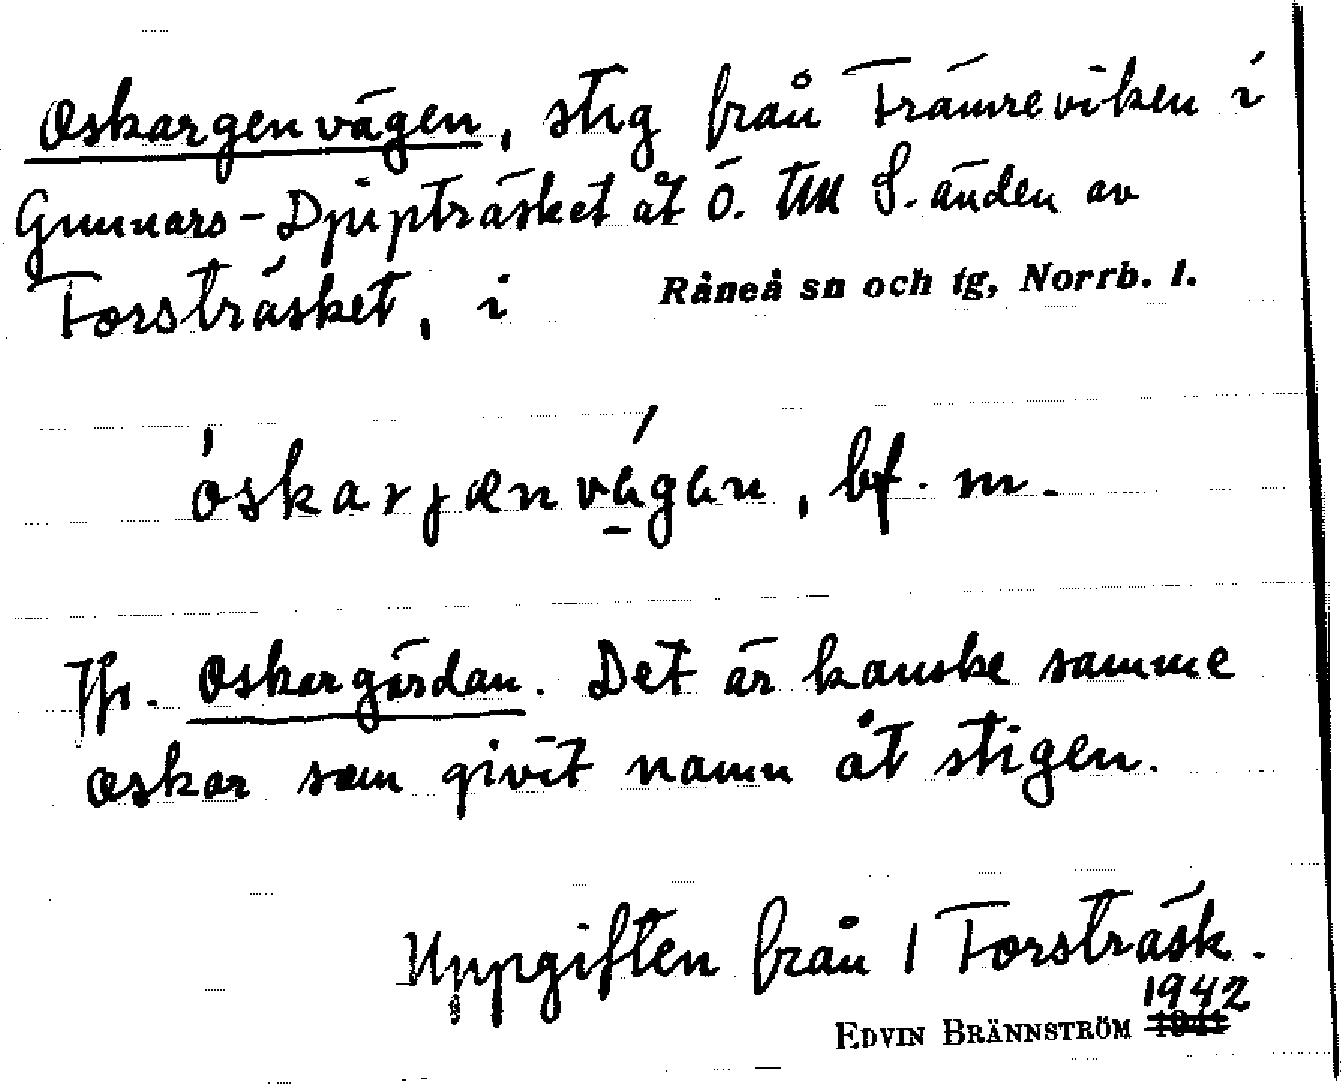 Oskargenvägen, stig från Främreviken i
Gunnars-Djupträsket åt ö. till S. änden av
Forsträsket, i Råneå sn och tg, Norrb. l.
óskarjænvágan, bf. m.
Jfr. Oskargärdan. Det är kanske samme
Oskar som givit namn åt stigen.
Uppgiften från 1 Forsträsk.
1942
EDVIN BRÄNNSTRÖM 1941